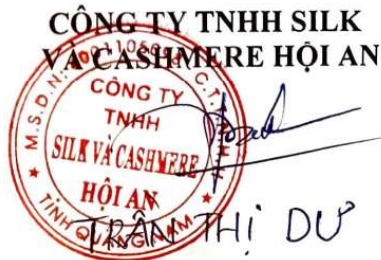 CÔNG TY TNHH SILK
VÀ CASHMERE HỘI AN
M.S.D.N:
C.T
CÔNG TY
TNHH
SILK VÀ CASHMERE
HỘI AN
TỈNH QUẢNG NAM
TRẦN THỊ DƯ